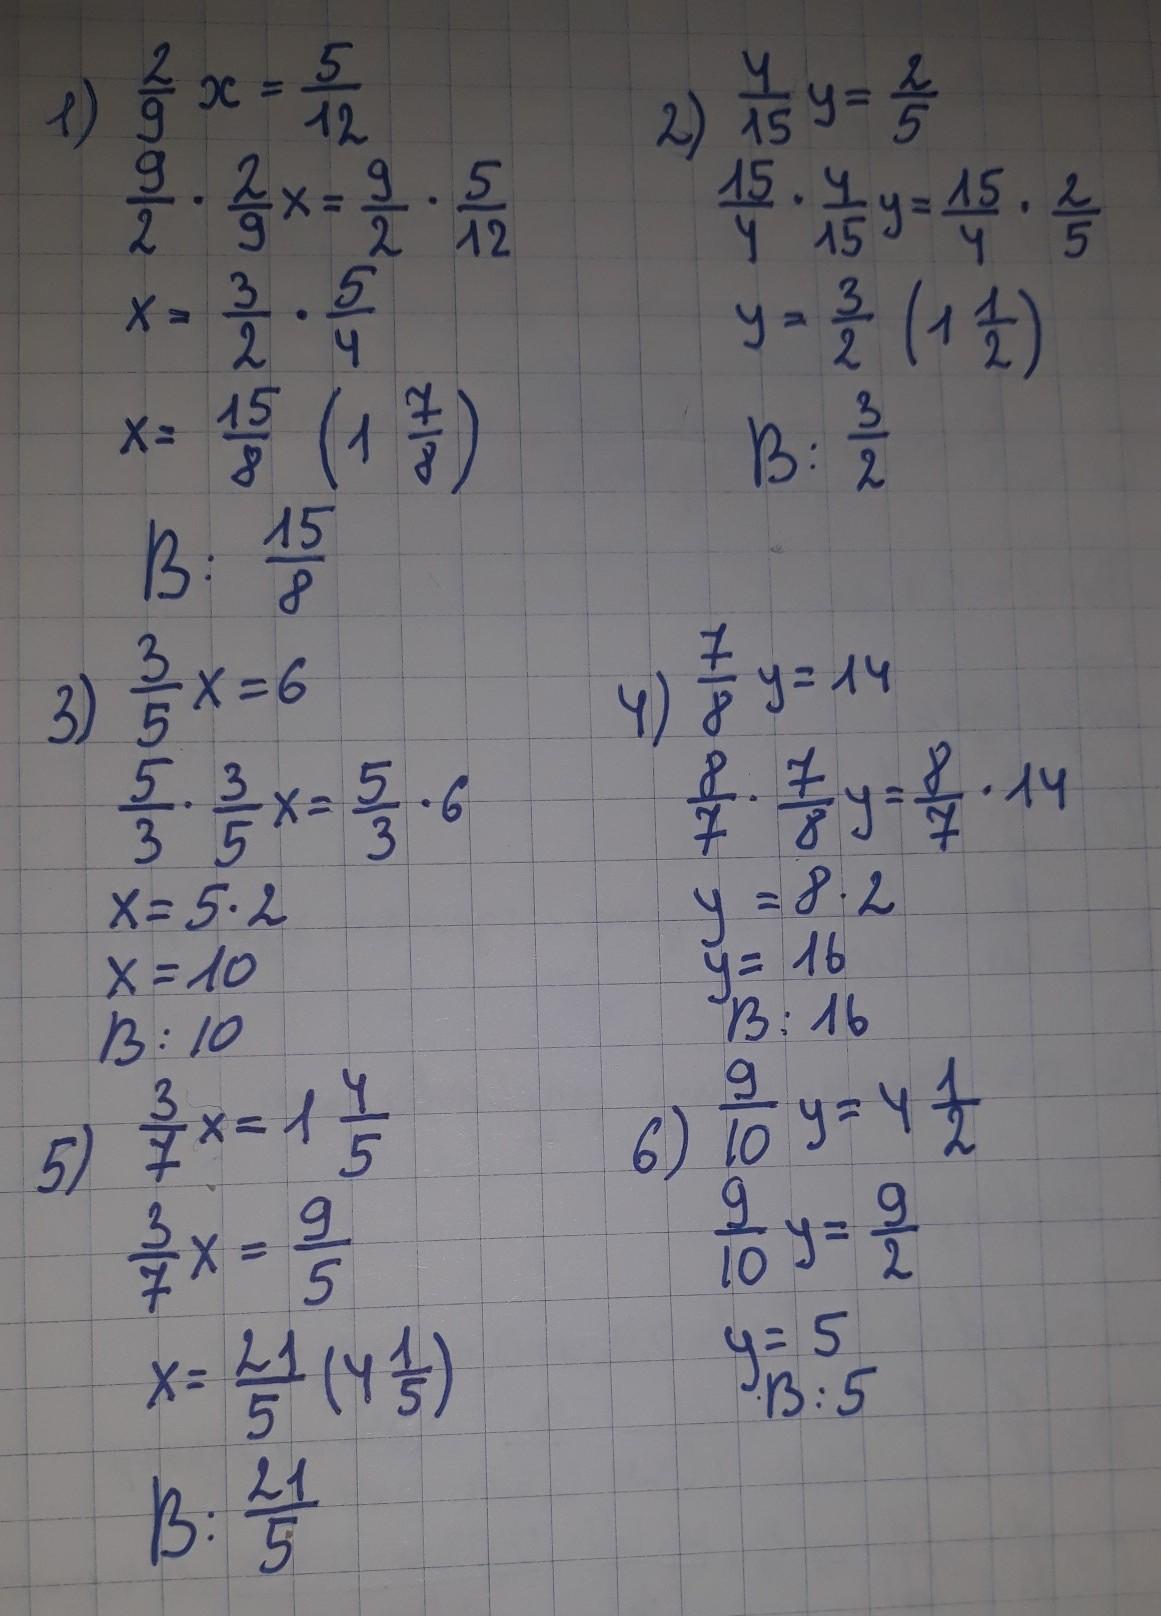 1) 2/9 x = 5/12
9/2 · 2/9 x = 9/2 · 5/12
x = 3/2 · 5/4
x = 15/8 (1 7/8)
В: 15/8
2) 4/15 y = 2/5
15/4 · 4/15 y = 15/4 · 2/5
y = 3/2 (1 1/2)
В: 3/2
3) 3/5 x = 6
5/3 · 3/5 x = 5/3 · 6
x = 5 · 2
x = 10
В: 10
4) 7/8 y = 14
8/7 · 7/8 y = 8/7 · 14
y = 8 · 2
y = 16
В: 16
5) 3/7 x = 1 4/5
3/7 x = 9/5
x = 21/5 (4 1/5)
В: 21/5
6) 9/10 y = 4 1/2
9/10 y = 9/2
y = 5
В: 5